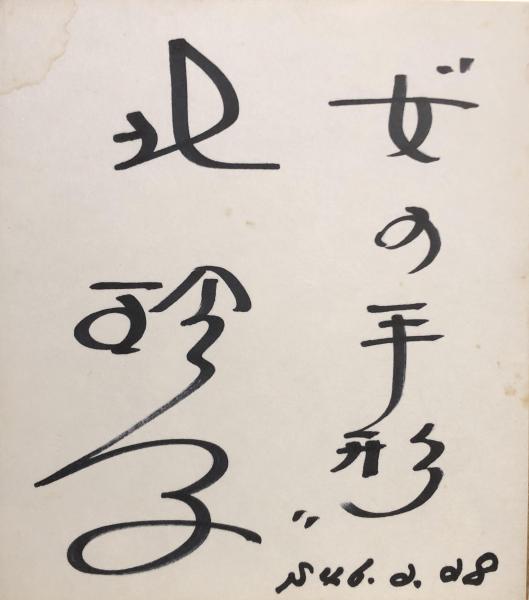 "女の手形"
北玲子
S46.2.28